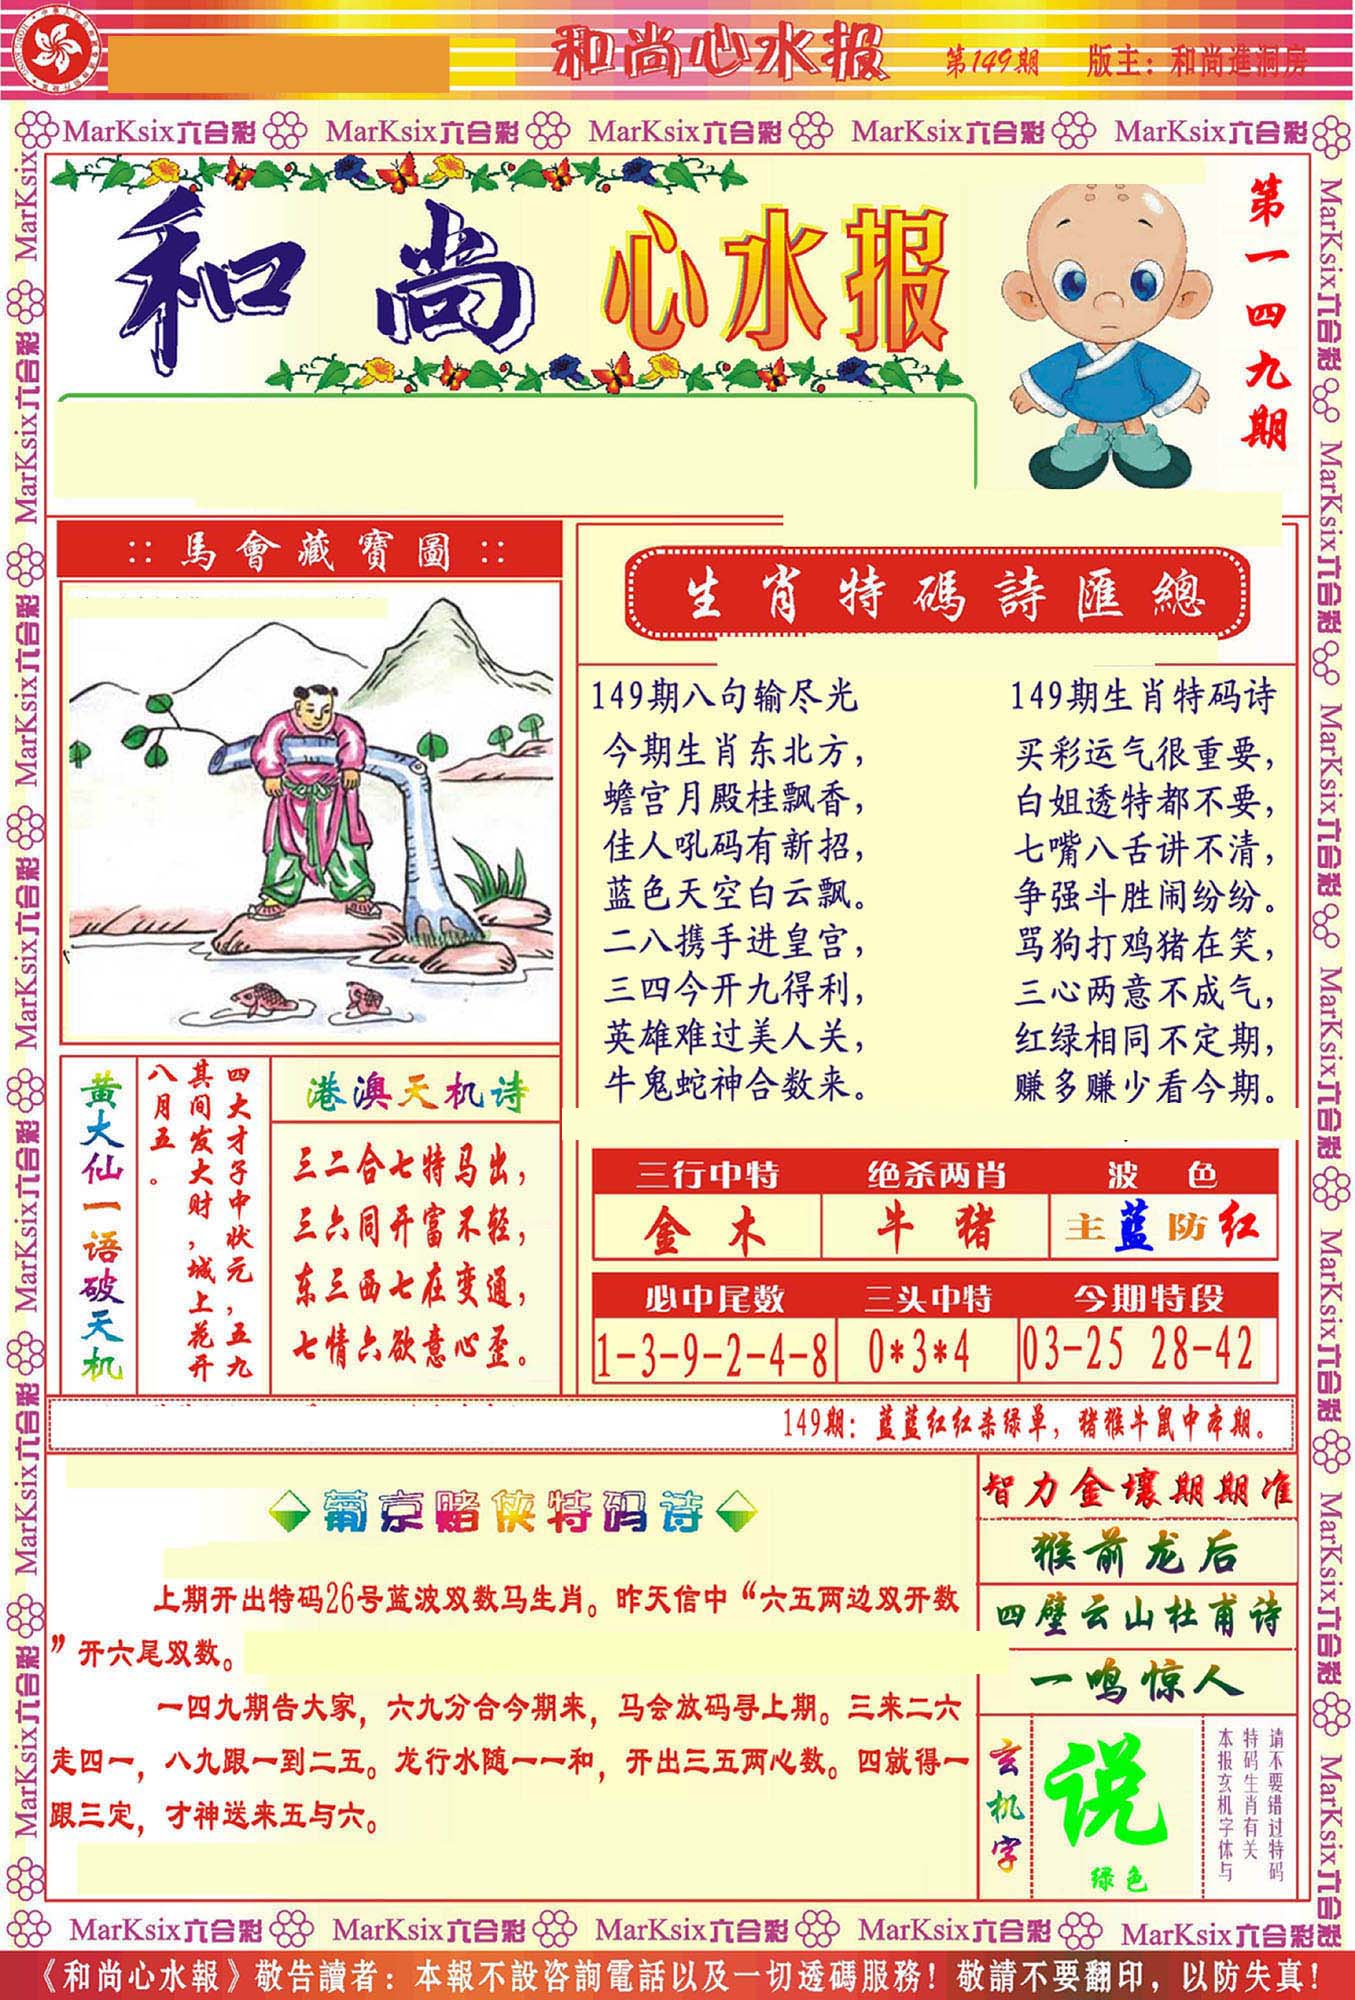 和尚心水报
第149期
版主：和尚進洞房
MarKsix六合彩 MarKsix六合彩 MarKsix六合彩 MarKsix六合彩 MarKsix六合彩
和尚心水报
第一四九期
馬會藏寶圖
生肖特碼詩匯總
149期八句输尽光
今期生肖东北方，
蟾宫月殿桂飘香，
佳人吼码有新招，
蓝色天空白云飘。
二八携手进皇宫，
三四今开九得利，
英雄难过美人关，
牛鬼蛇神合数来。
149期生肖特码诗
买彩运气很重要，
白姐透特都不要，
七嘴八舌讲不清，
争强斗胜闹纷纷。
骂狗打鸡猪在笑，
三心两意不成气，
红绿相同不定期，
赚多赚少看今期。
黄大仙一语破天机
四大才子中状元，五九
其间发大财，城上花开
八月五。
港澳天机诗
三二合七特马出，
三六同开富不轻，
东三西七在变通，
七情六欲意心歪。
三行中特 绝杀两肖 波色
金木 牛猪 主蓝防红
必中尾数 三头中特 今期特段
1-3-9-2-4-8 0*3*4 03-25 28-42
149期：蓝蓝红红杀绿单，猪猴牛鼠中本期。
葡京赌侠特码诗
上期开出特码26号蓝波双数马生肖。昨天信中“六五两边双开数
”开六尾双数。
一四九期告大家，六九分合今期来，马会放码寻上期。三来二六
走四一，八九跟一到二五。龙行水随一一和，开出三五两心数。四就得一
跟三定，才神送来五与六。
智力金壤期期准
猴前龙后
四壁云山杜甫诗
一鸣惊人
玄机字
说
绿色
请不要错过特码
特码生肖有关
本报玄机字体与
MarKsix六合彩 MarKsix六合彩 MarKsix六合彩 MarKsix六合彩 MarKsix六合彩
《和尚心水報》敬告讀者：本報不設咨詢電話以及一切透碼服務！敬請不要翻印，以防失真！